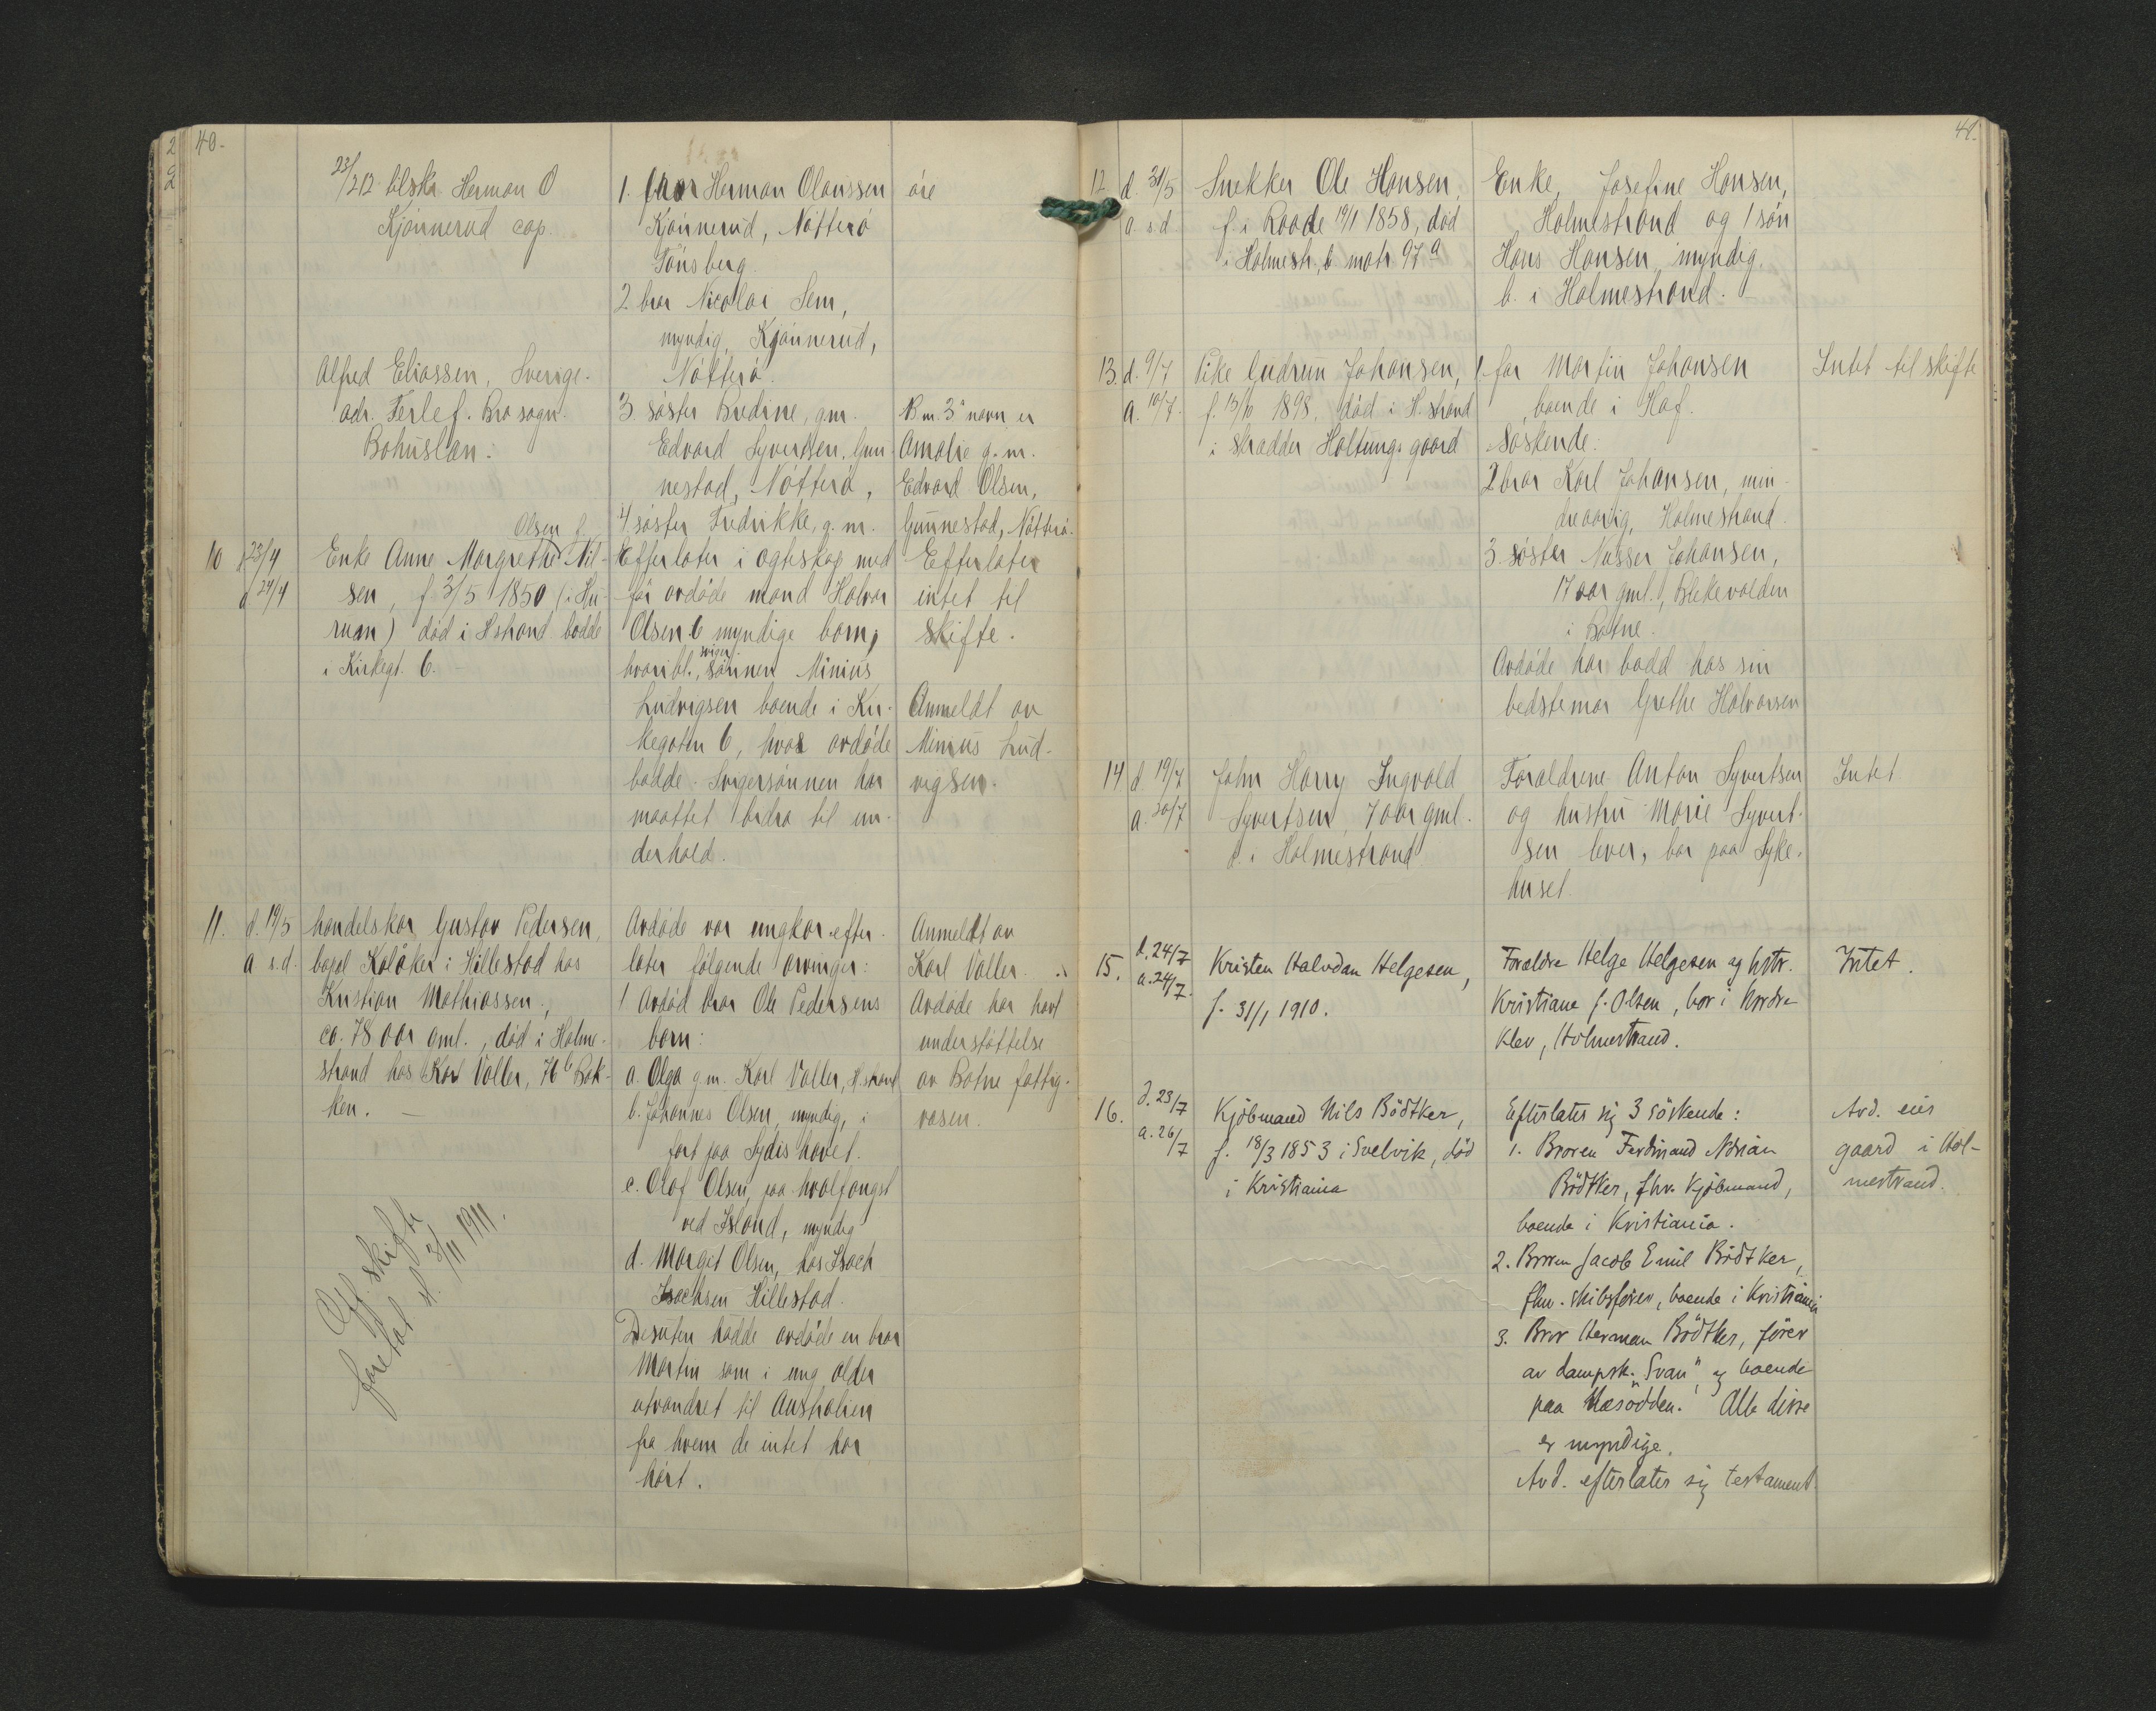 40.
23/212 tilskr. Herman O
Kjönnerud cap.
Alfred Eliassen, Sverige.
adr. Ferlef. Bro sogn.
Bohuslan:
1. far Herman Olaussen
Kjönnerud, Nötterö
Tönsberg.
2. bror Nicolai Sem,
myndig, Kjönnerud,
Nötterö.
3 söster Bredine, g.m.
Edvard Syvertsen, Gun-
nestad, Nötterö,
4 söster Fredrikke, g.m.
öre
B.m. 3s navn er
Amalie g.m.
Edvard Olsen,
Gunnestad, Nötterö.
10 d 23/4
a 24/4
Olsen f.
Enke Anne Margrethe Nil-
sen, f 3/5 1850 (i Hu-
rum) död i Hstrand bodde
i Kirkegt. 6.
Efterlater i egteskap med
för avdöde mand Halvor
Olsen 6 myndige barn,
sviger
hvoribl. sönnen Minius
Ludvigsen boende i Kir-
kegaten 6, hvor avdöde
bodde. Svigersönnen har
maattet bidra til un-
derhold.
Efterlater
intet til
skifte.
Anmeldt av
Minius Lud-
vigsen.
11. d. 19/5
a s.d.
handelskar Gustav Pedersen,
bopæl Kolåker i Hillestad hos
Kristian Mathiassen,
ca. 78 aar gml., död i Holme-
strand hos Karl Valler, 76b Bak-
ken.
Off. skifte
foretat d. 3/11 1911.
Avdöde var ungkar efter-
later följende arvinger:
1 Avdöd bror Ole Pedersens
barn:
a. Olga g.m. Karl Valler, H.strand
b. Johannes Olsen, myndig, i
fart paa Sydishavet.
c. Olaf Olsen, paa hvalfangst
ved Island, myndig
d. Margit Olsen, hos Isach
Isachsen Hillestad.
Desuten hadde avdöde en bror
Martin som i ung alder
utvandret til Australien
fra hvem de intet har
hört.
Anmeldt av
Karl Valler.
Avdöde har havt
understöttelse
av Botne fattig-
væsen.
41.
12. d. 31/5
a. s.d
Snekker Ole Hansen,
f. i Raade 19/1 1858, död
i Holmestr., b matr 97a
Enke, Josefine Hansen,
Holmestrand og 1 sön
Hans Hansen, myndig.
b. i Holmestrand.
13. d. 9/7
a. 10/7.
Pike Gudrun Johansen,
f. 13/10 1898. död i H.strand
i skrædder Holtungs gaard
1. far Martin Johansen
boende i Hof.
Söskende:
2 bror Karl Johansen, min-
dreaarig, Holmestrand.
3. söster Nusser Johansen,
17 aar gml., Blekevolden
i Botne.
Avdöde har bodd hos sin
bedstemor Grethe Halvorsen
Intet til skifte
14. d 19/7
a. 20/7
John Harry Ingvald
Syvertsen, 7 aar gml.
d. i Holmestrand
Forældrene Anton Syvertsen
og hustru Marie Syvert-
sen lever, bor paa Syke-
huset.
Intet
15. d. 24/7
a. 24/7.
Kristen Halvdan Helgesen,
f. 31/1 1910.
Forældre Helge Helgesen og hstr.
Kristiane f. Olsen, bor i Nordre
Klev, Holmestrand.
Intet.
16. d. 23/7
a. 26/7
Kjöbmand Nils Bödtker,
f. 18/3 1853 i Svelvik, död
i Kristiania
Efterlater sig 3 söskende:
1. Broren Ferdinand Adrian
Bödtker, fhv. Kjöbmand,
boende i Kristiania.
2. Broren Jacob Emil Bödtker,
fhv. skibsförer, boende i Kristiania
3. Bror Herman Bödtker, förer
av dampsk. "Svan", og boende
paa Næsodden. Alle disse
er myndige.
Avd. efterlater sig testament.
Avd. eier
gaard i Hol-
mestrand.